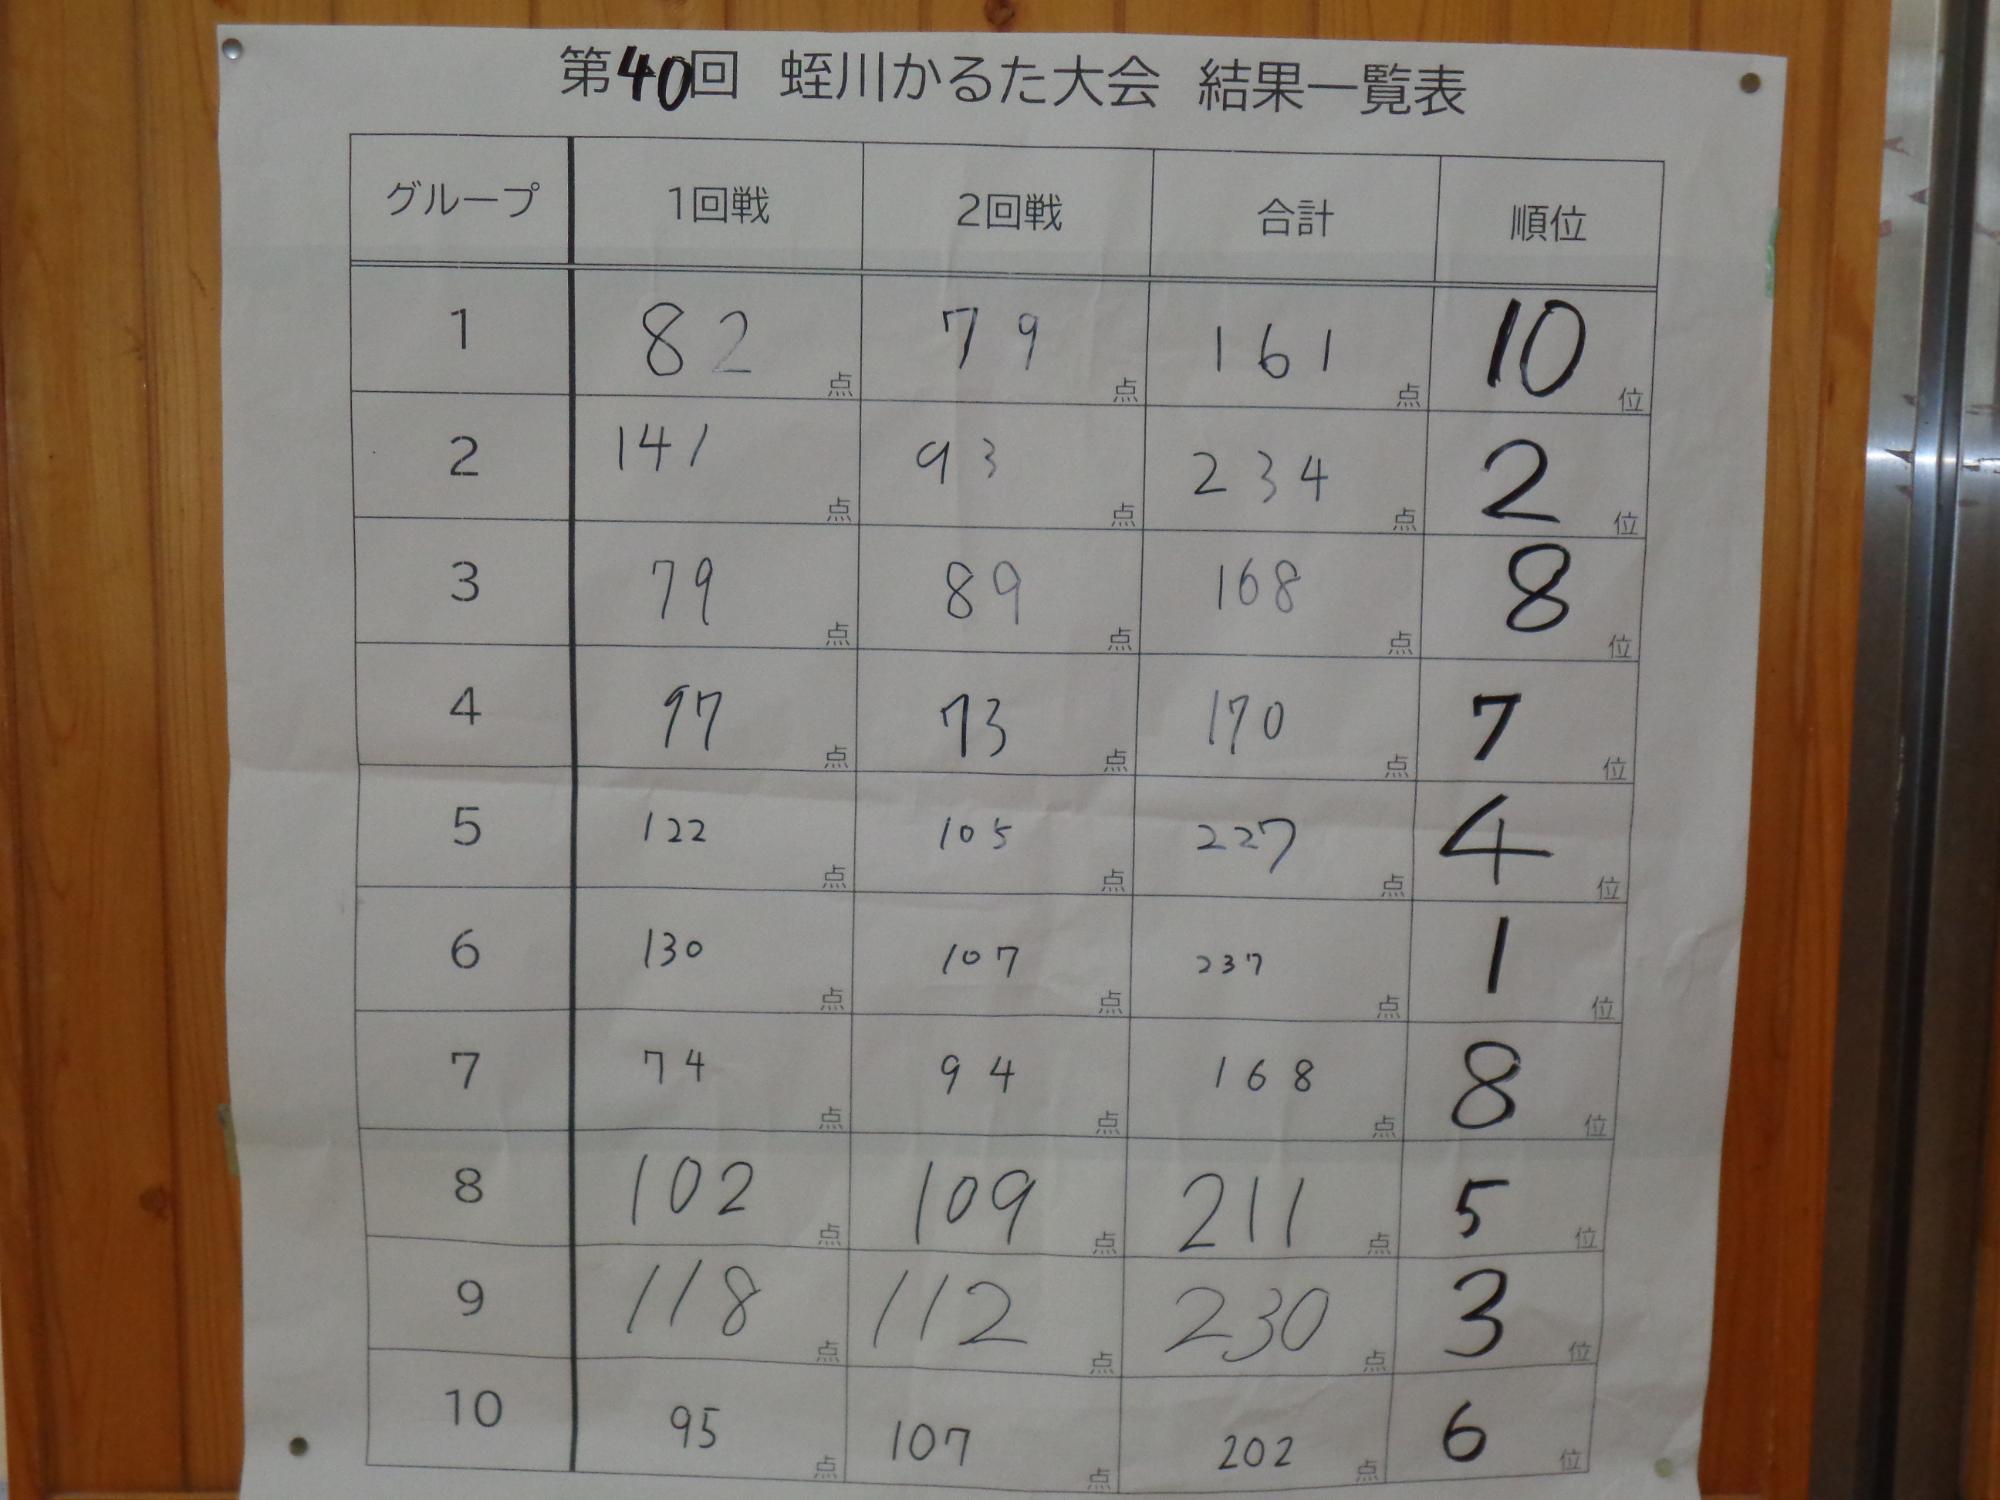 第40回 蛭川かるた大会 結果一覧表
グループ 1回戦 2回戦 合計 順位
1 82点 79点 161点 10位
2 141点 93点 234点 2位
3 79点 89点 168点 8位
4 97点 73点 170点 7位
5 122点 105点 227点 4位
6 130点 107点 237点 1位
7 74点 94点 168点 8位
8 102点 109点 211点 5位
9 118点 112点 230点 3位
10 95点 107点 202点 6位